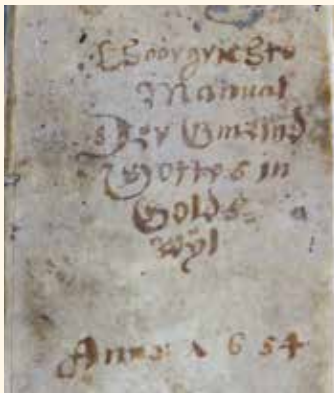 Choorgrichts
Manual
Der Gmeind
Gottes in
Golds-
wyl
Anno 1654